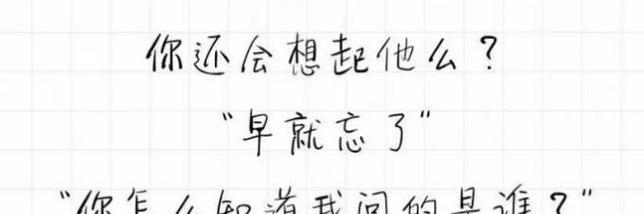 你还会想起他么？
“早就忘了”
“你怎么知道我问的是谁？”